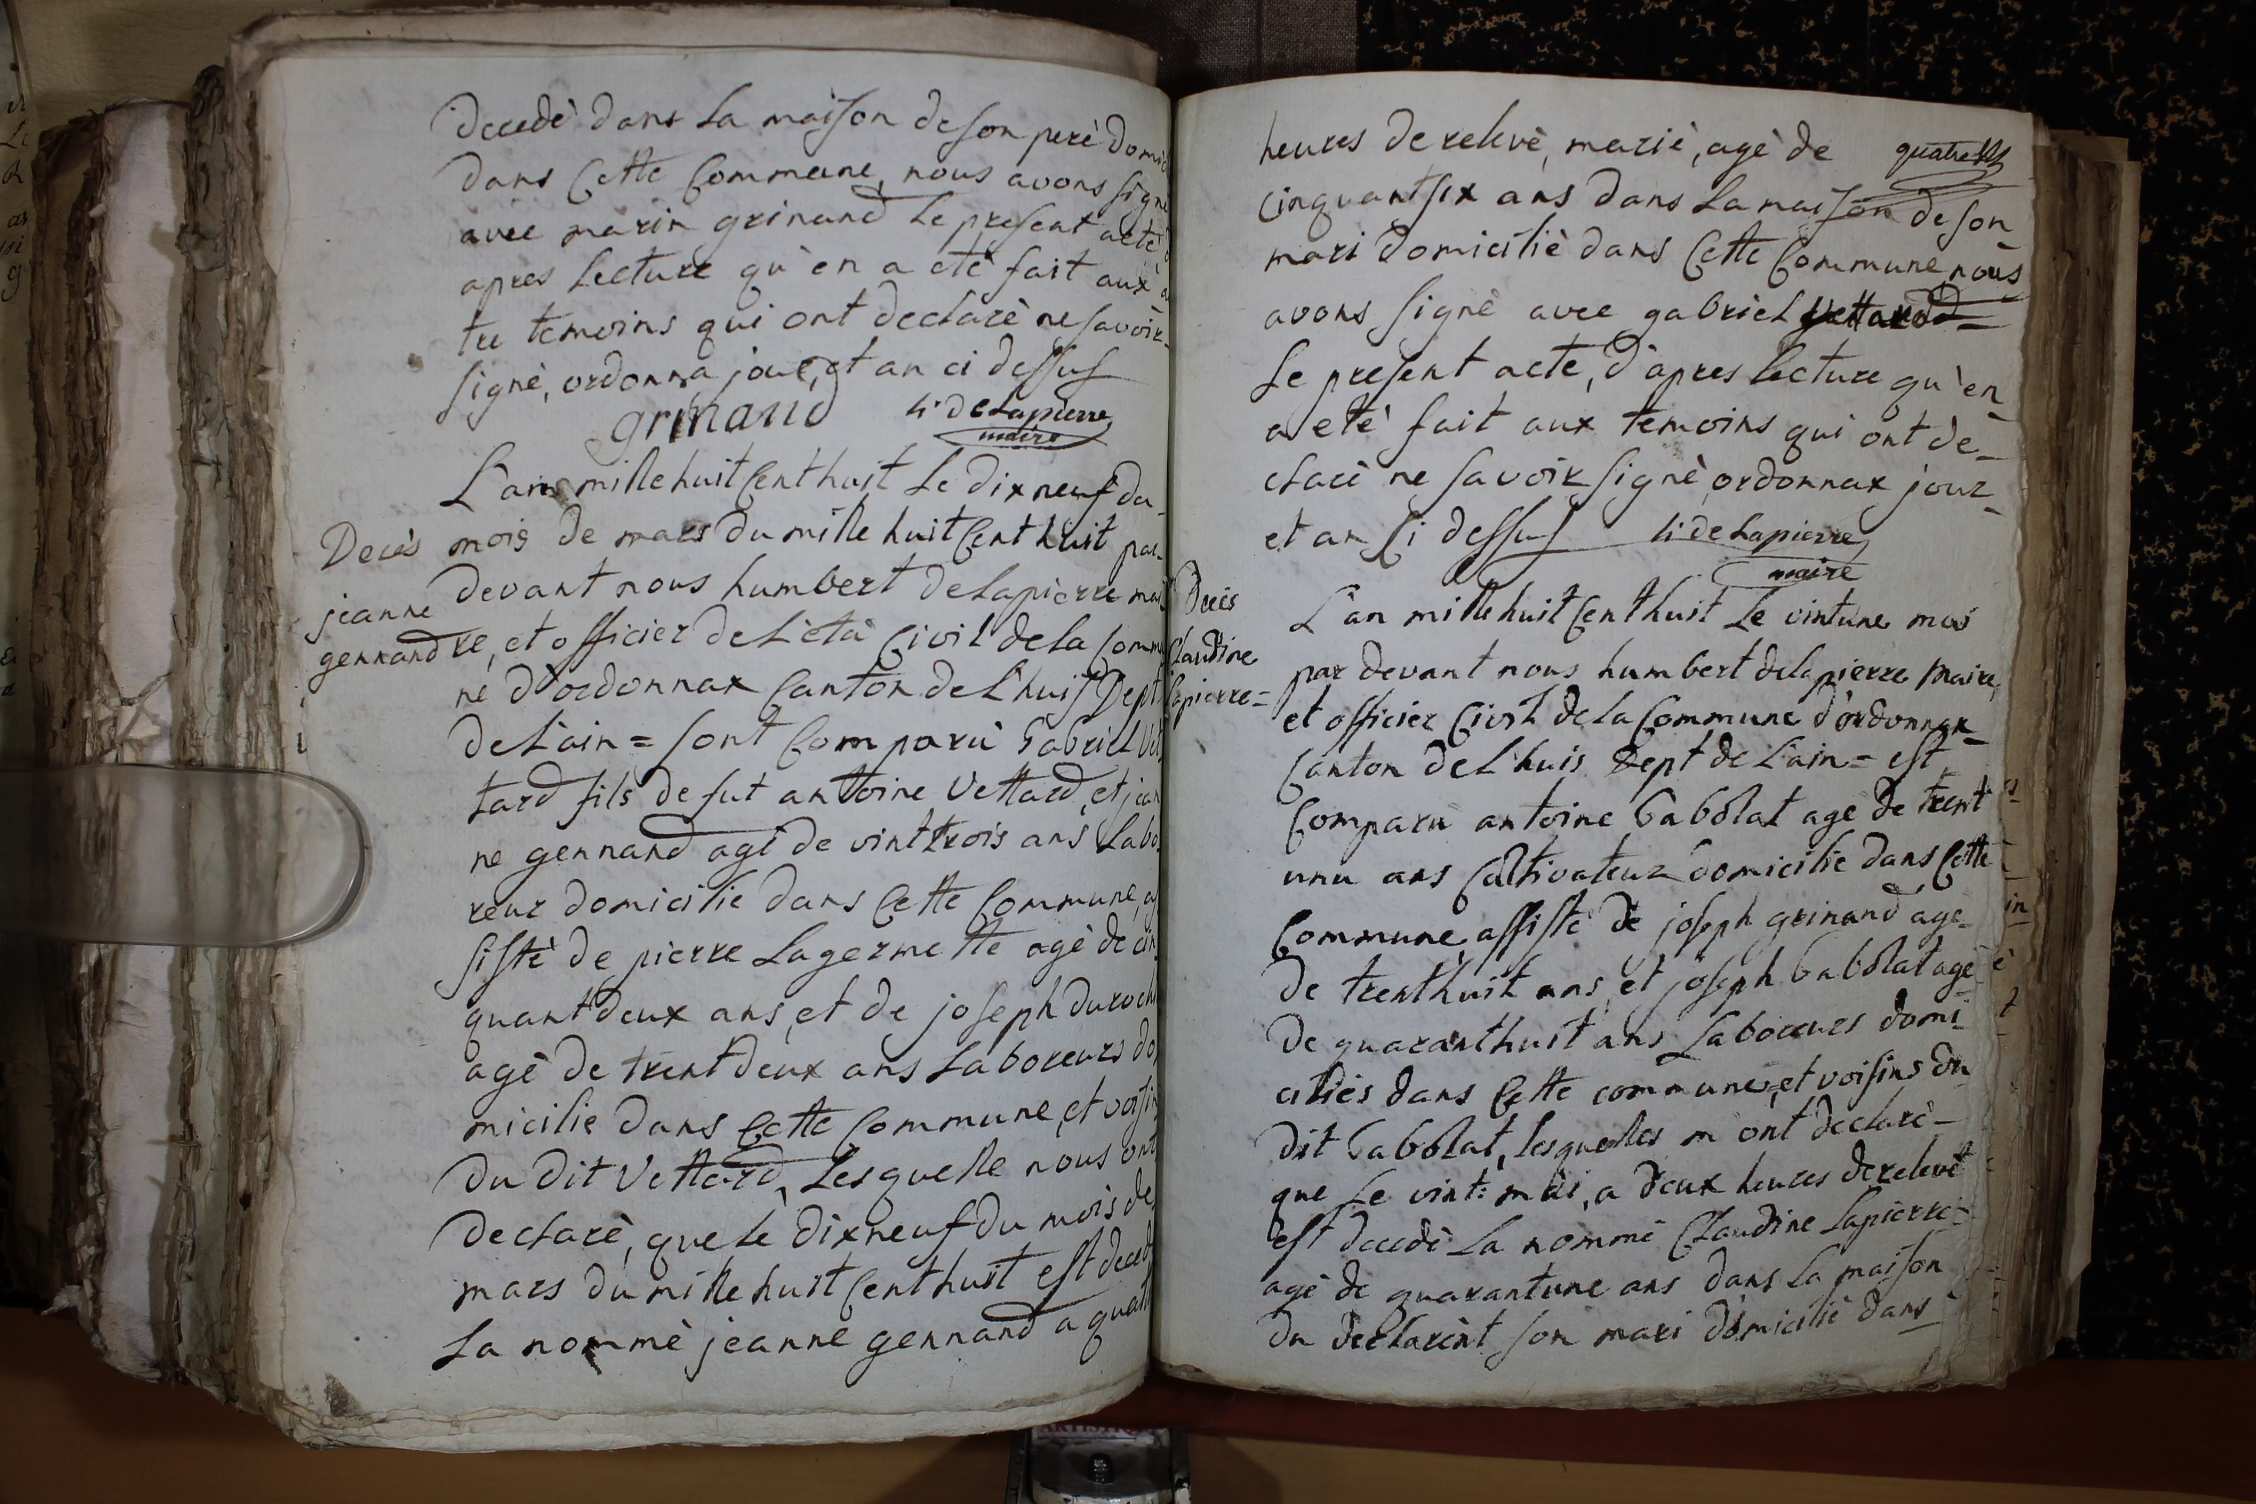 decedè dans la maison de son perè domi
dans cette commune, nous avons signe
avec marin grinand le present acte
apres lecture qu'en a etè fait aux
tu temoins qui ont declarè ne savoir
signè, ordonna jour, et an ci dessus
grinand h: delapierre
maire
L'an mille huit cent huit le dix neuf du
Decès
jeanne
gennand
mois de mars du mille huit cent huit par
devant nous humbert delapierre mai
re, et officier de l'èta civil de la commu
ne d'ordonnax canton de l'huis dept
de l'ain = sont comparù gabriel vet
tard fils de fut antoine vettard, et jean
ne gennand agè de vint trois ans labo
reur domicilie dans cette commune, as
sistè de pierre lagermette agè de cin
quant deux ans, et de joseph duroch
agè de trent deux ans laboreurs do
micilie dans cette commune, et voisin
du dit vettard, lesquelle nous ont
declarè, que le dix neuf du mois de
mars du mille huit cent huit est decedè
la nommè jeanne gennand a quatre
heures de relevè, mariè, agè de quatre
cinquant six ans dans la maison de son
mari domiciliè dans cette commune, nous
avons signè avec gabriel vettard
le present acte, d'apres lecture qu'en
a etè fait aux temoins qui ont de-
clarè ne savoir signè, ordonnax jour
et an si dessus h: delapierre
maire
Decès
claudine
lapierre =
L'an mille huit cent huit le vintune mai
par devant nous humbert delapierre maire,
et officier civil de la commune d'ordonnax
canton de l'huis dept de l'ain = est
comparu antoine babolat age de trent
unu ans cultivateur domicilie dans cette
commune assistè de joseph grinand age
de trent huit ans, et joseph babolat age
de quarant huit ans laboreurs domi
ciliès dans cette commune, et voisins du
dit babolat, lesquelles m'ont declarè
que le vint: mai, a deux heures de relevè
est decedè la nommè claudine lapierre
agè de quarantune ans dans la maison
du declarènt son mari domiciliè dans